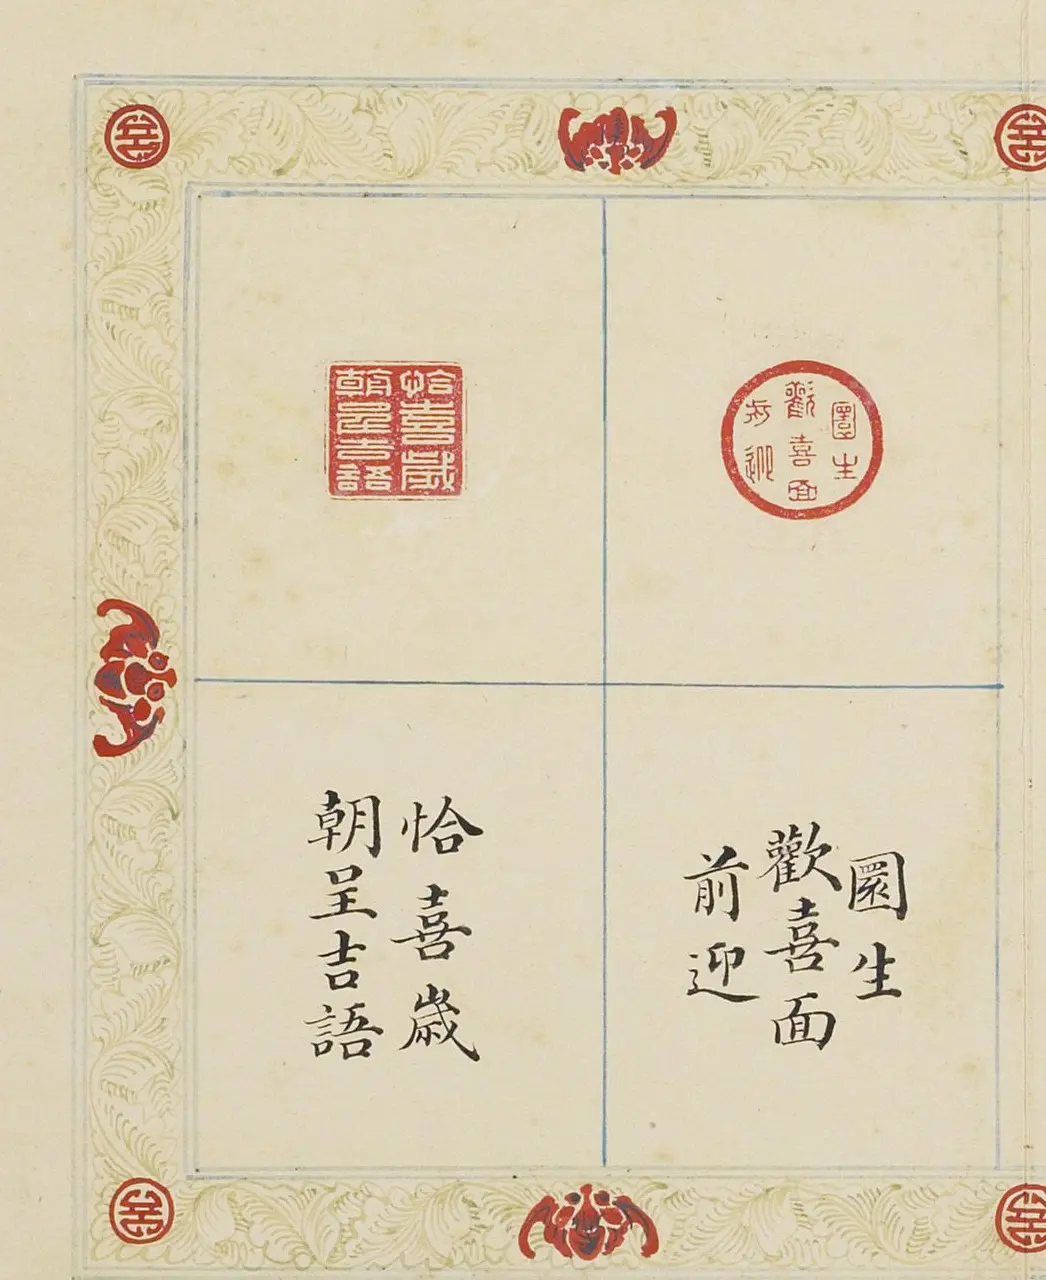 圜生
歡喜面
前迎
恰喜歲
朝呈吉語
圜生
歡喜面
前迎
恰喜歲
朝呈吉語